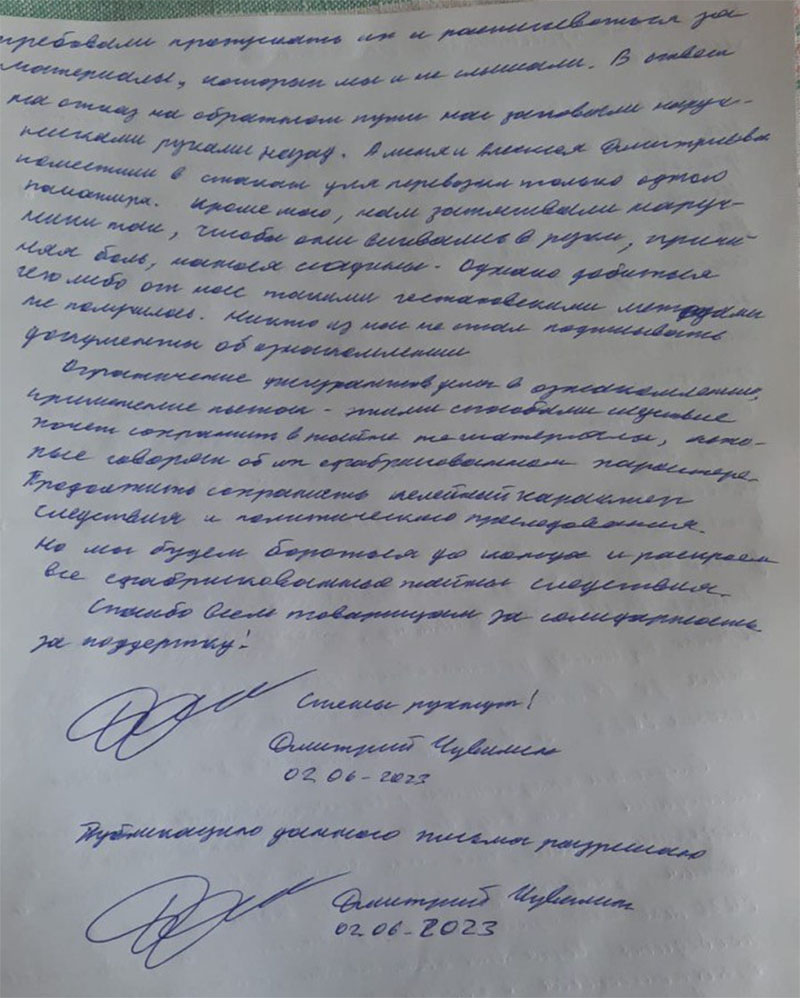 требовали пропускать их и расписываться за
материалы, которых мы и не слышали. В ответ
на отказ на обратном пути нас заковали наруч-
никами руками назад. А меня и Алексея Дмитриевича
поместили в стакан для перевозки только одного
человека. Кроме того, нам затягивали наруч-
ники так, чтобы они впивались в руки, причи-
няя боль, нанося ссадины. Однако добиться
чего либо от нас такими гестаповскими методами
не получилось. Никто из нас не стал подписывать
документы об ознакомлении
Ограничение фигурантов дела в ознакомлении,
применение пыток - этими способами следствие
хочет сохранить в тайне те материалы, кото-
рые говорят об их сфабрикованном характере.
Продолжить сохранять келейный характер
следствия и политического преследования.
Но мы будем бороться до конца и раскроем
все сфабрикованные тайны следствия.
Спасибо всем товарищам за солидарность
за поддержку!
Стены рухнут!
Дмитрий Чувилин
02.06-2023
Публикацию данного письма разрешаю
Дмитрий Чувилин
02.06-2023